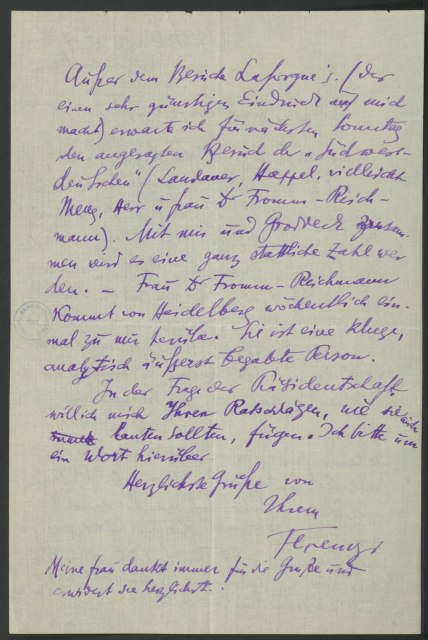 Außer dem Besuche Laforgue's. (der
einen sehr günstigen Eindruck auf mich
macht) erwarte ich für nächsten Sonntag
den angesagten Besuch der „Südwest-
deutschen" (Landauer, Happel, vielleicht
Meng, Herr u frau Dr Fromm-Reich-
mann). Mit mir und Groddeck zusam-
men wird es eine ganz stattliche Zahl wer
den. – Frau Dr Fromm-Reichmann
kommt von Heidelberg wöchentlich ein-
mal zu mir herüber. Sie ist eine kluge,
analytisch äußerst begabte Person.
In der Frage der Präsidentschaft
will ich mich Ihren Ratschlägen, wie sie
lauten sollten, fügen. Ich bitte um
ein Wort hierüber.
Herzlichste Grüße von
Ihrem
Ferenczi
Meine frau dankt immer für die Grüße und
erwidert sie herzlichst.